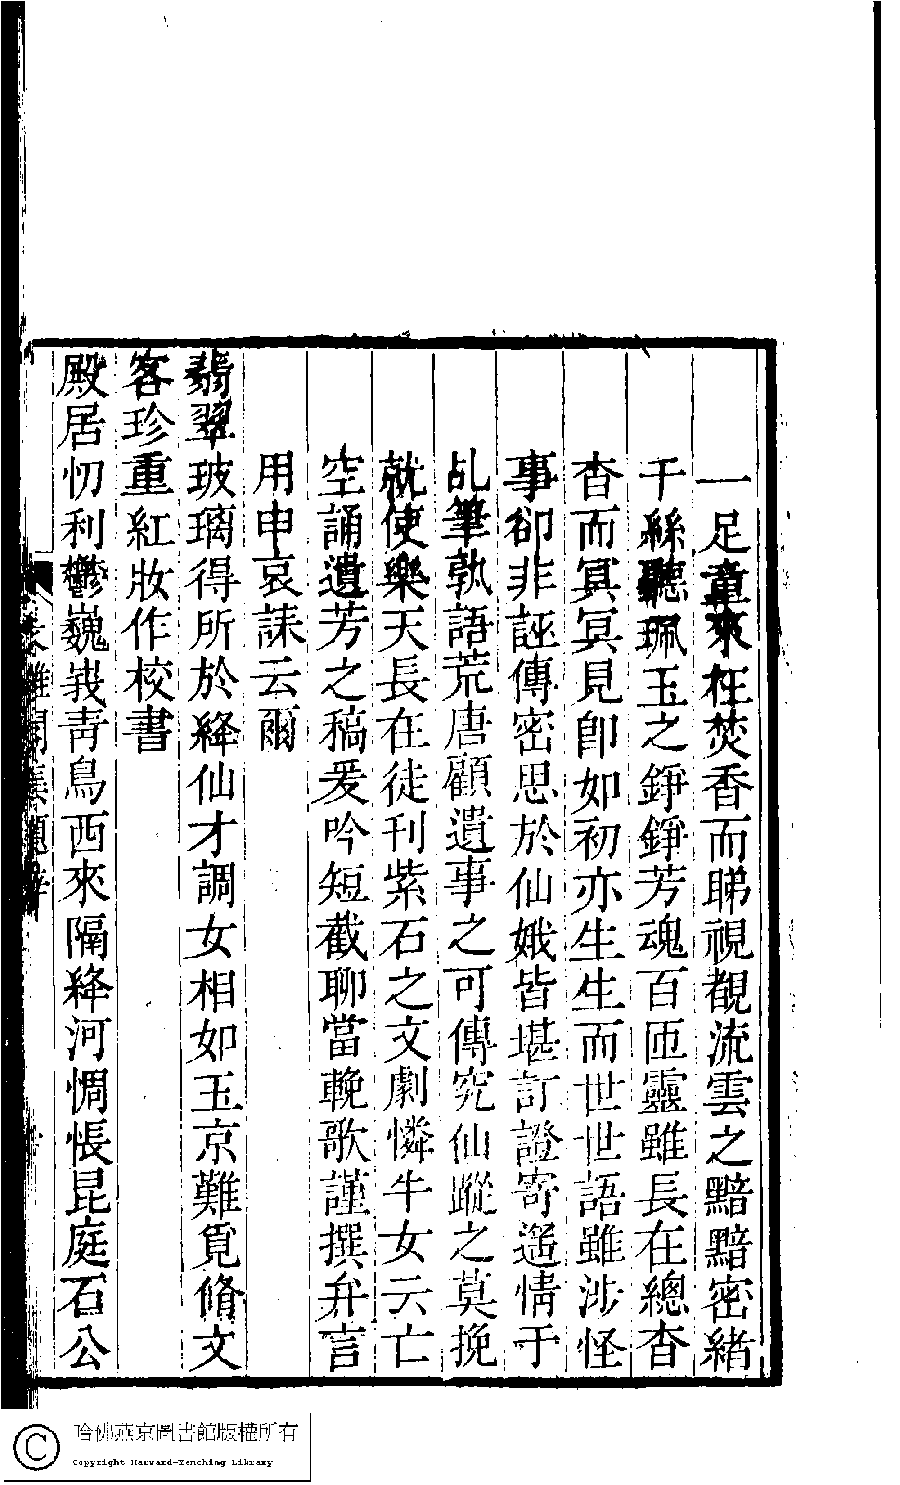 一足童來在焚香而睇視覩流雲之黯黯密緒
千絲聽珮玉之錚錚芳魂百匝靈雖長在總杳
杳而冥冥見卽如初亦生生而世世語雖涉怪
事卻非誣傳密思於仙娥皆堪訂證寄遥情于
乩筆孰語荒唐顧遺事之可傳究仙蹤之莫挽
就使樂天長在徒刊紫石之文劇憐牛女云亡
空誦遺芳之稿爰吟短截聊當輓歌謹撰弁言
用申哀誄云爾
翡翠玻璃得所於絳仙才調女相如玉京難覓脩文
客珍重紅妝作校書
殿居忉利鬱巍峩靑鳥西來隔絳河惆悵昆庭石公
哈佛燕京圖書館版權所有
Copyright Harvard-Yenching Library